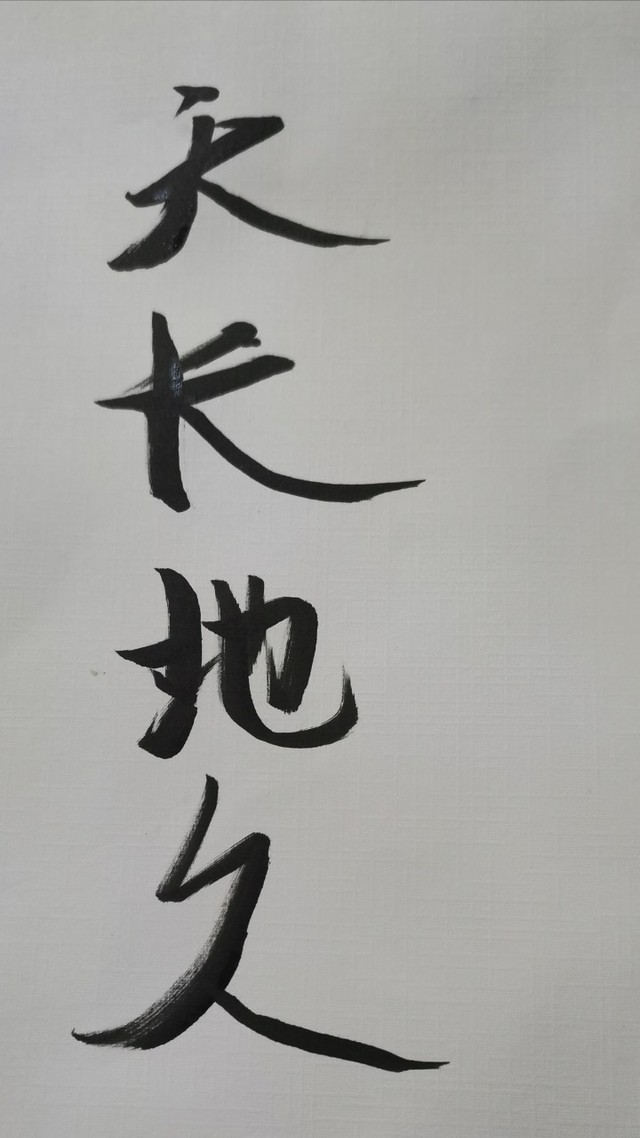 天长地久